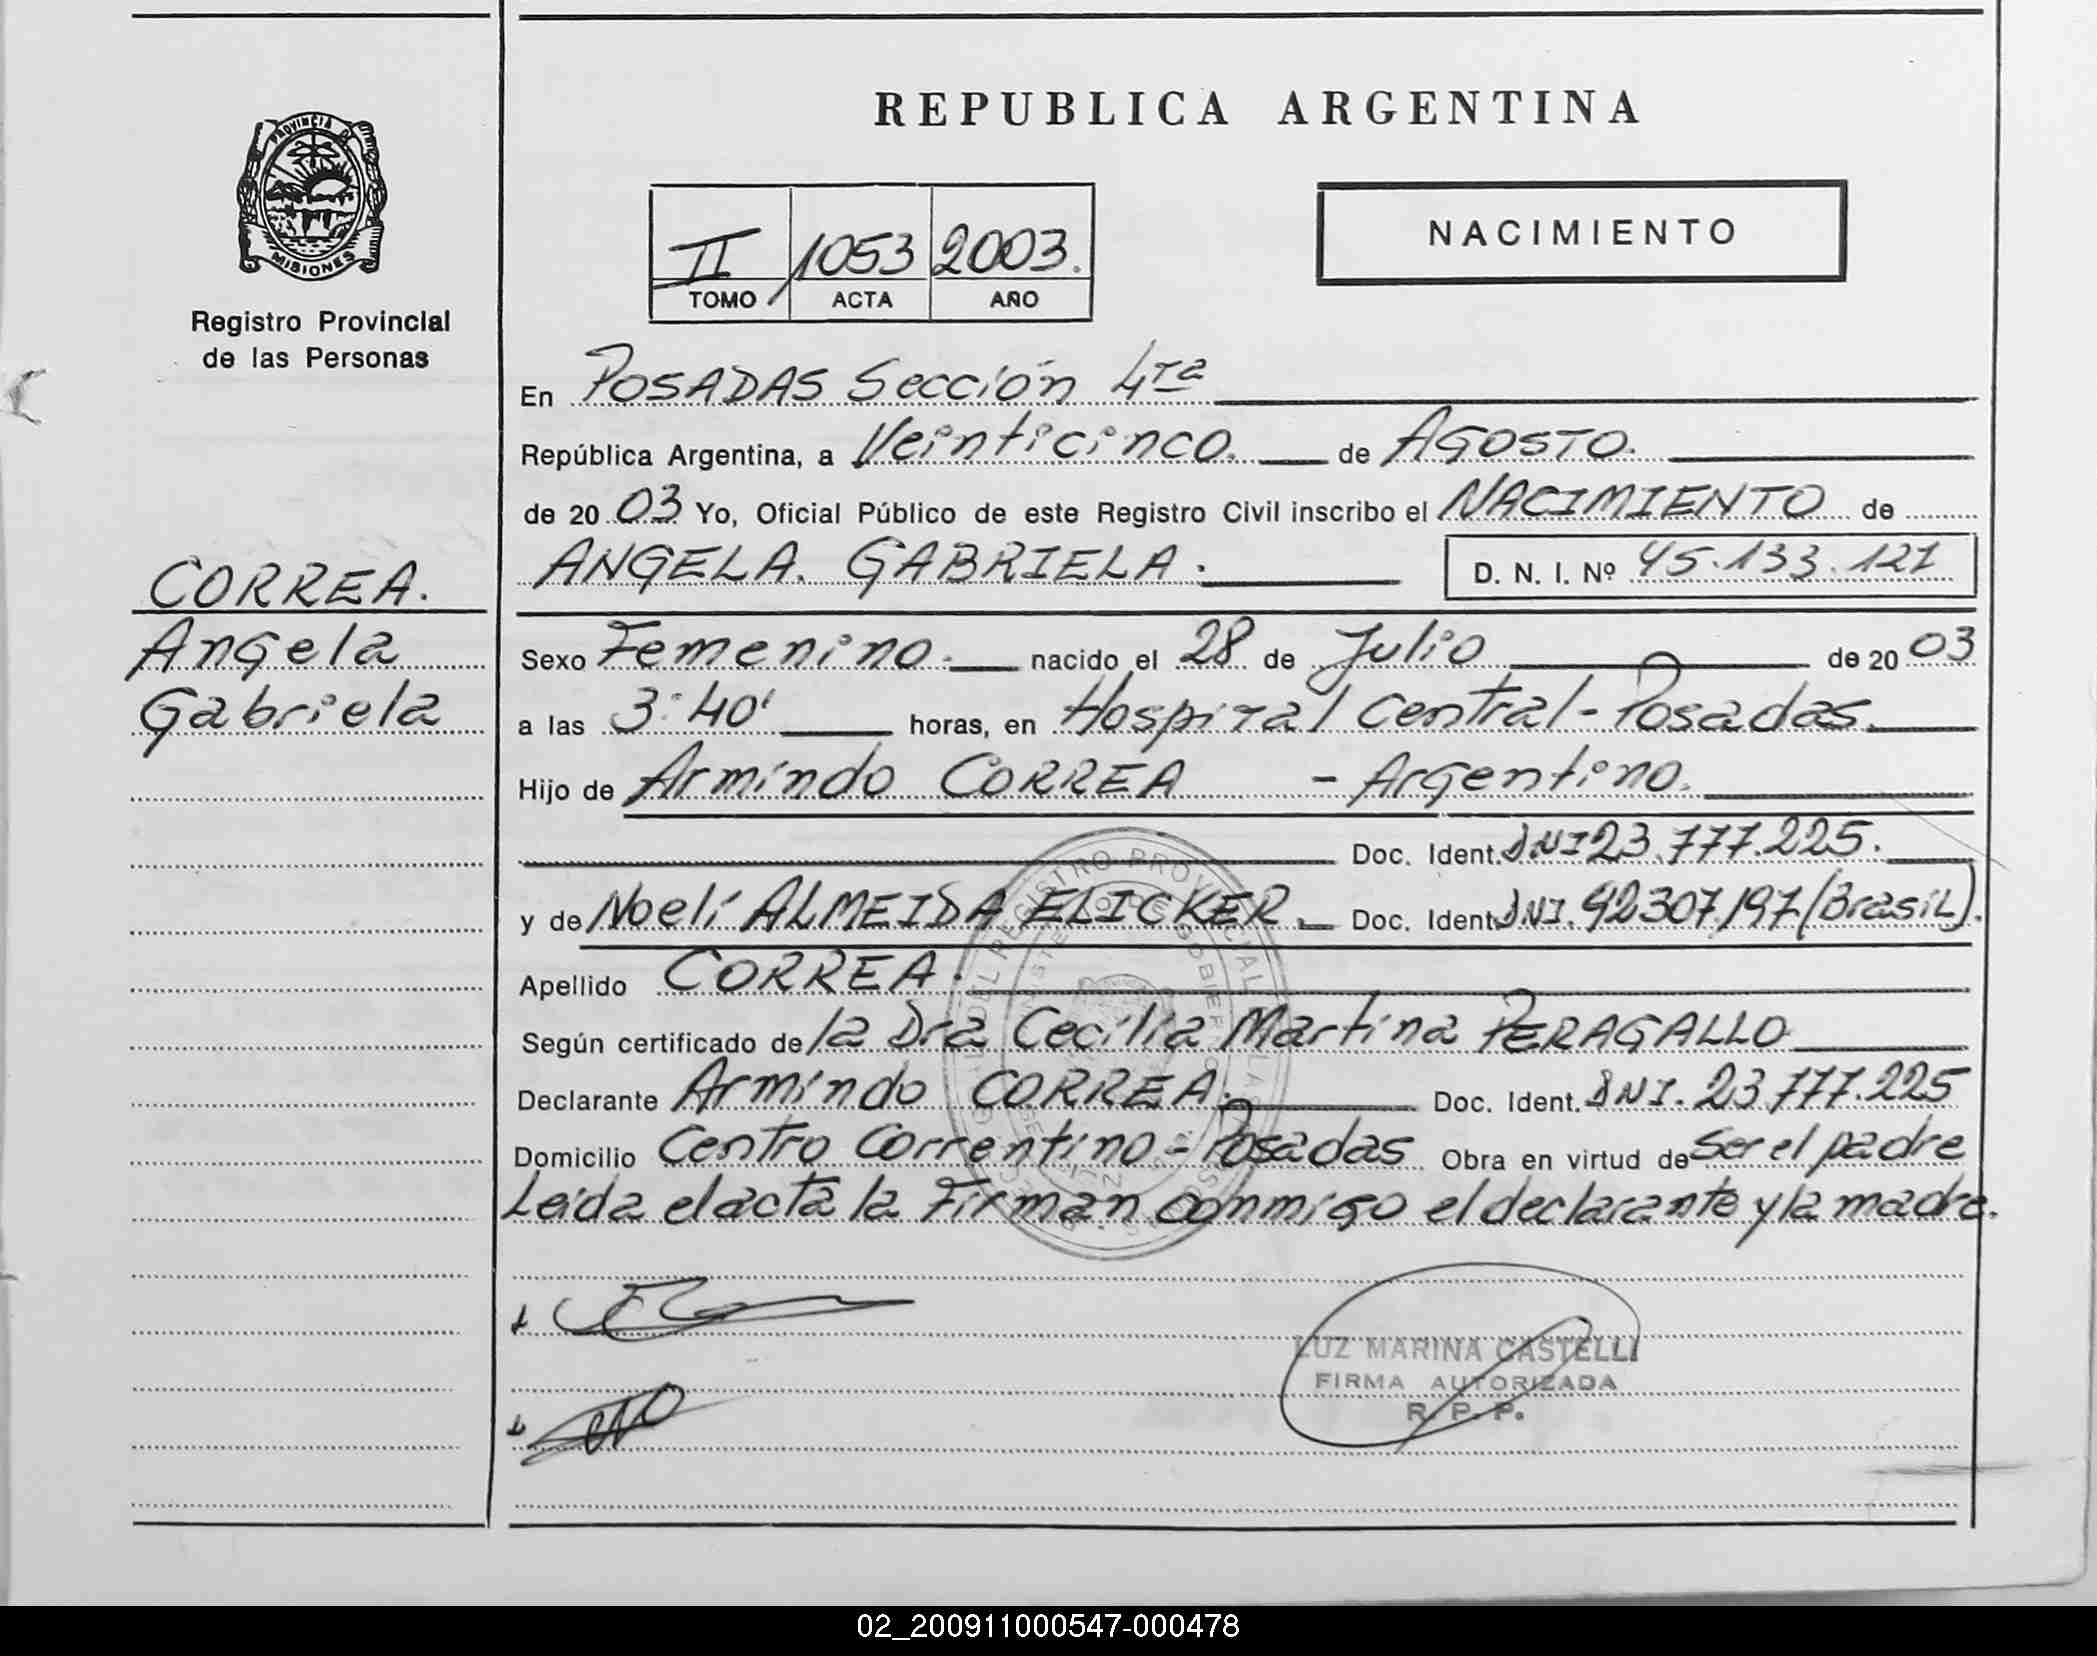 REPUBLICA ARGENTINA
PROVINCIA DE
MISIONES
Registro Provincial
de las Personas
NACIMIENTO
II 1053 2003.
TOMO ACTA AÑO
En POSADAS Sección 4ta
República Argentina, a Veinticinco. de AGOSTO.
de 20 03 Yo, Oficial Público de este Registro Civil inscribo el NACIMIENTO de
ANGELA. GABRIELA. D. N. I. Nº 45.133.121
CORREA.
Angela
Gabriela
Sexo Femenino. nacido el 28 de Julio de 20 03
a las 3:40' horas, en Hospital Central - Posadas.
Hijo de Armindo CORREA - Argentino.
Doc. Ident. DNI 23.777.225.
y de Noelí ALMEIDA ELICKER. Doc. Ident. DNI. 92307.197 (Brasil).
Apellido CORREA.
Según certificado de la Dra Cecilia Martina PERAGALLO
Declarante Armindo CORREA. Doc. Ident. DNI. 23.777.225
Domicilio Centro Correntino - Posadas Obra en virtud de ser el padre
Leída el acta la Firman conmigo el declarante y la madre.
LUZ MARINA CASTELLI
FIRMA AUTORIZADA
R. P. P.
02_200911000547-000478